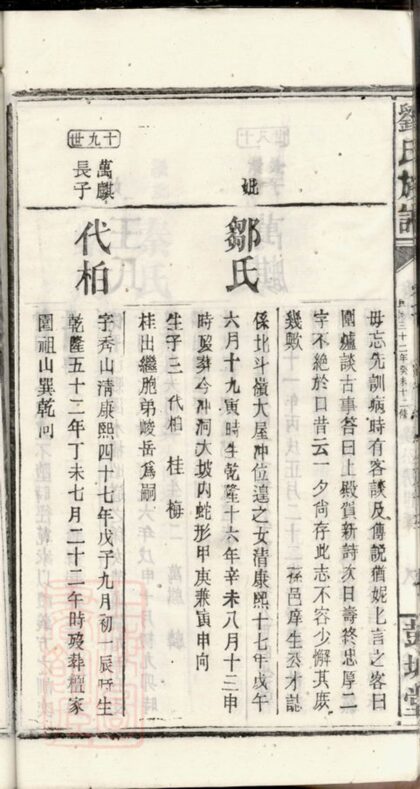 劉氏族譜
毋忘先訓病時有客談及傳說猶娓上言之客曰
圍爐談古事答曰上殿質新詩次日壽終忠厚二
字不絕於口昔云一夕尚存此志不容少懈其庶
幾歟
孫邑庠生丞才誌
妣
鄒氏
係北斗嶺大屋冲位遑之女清康熙十七年戊午
六月十九寅時生乾隆十六年辛未八月十三申
時歿葬今冲洞大坡内蛇形甲庚兼寅申向
生子三 代柏 桂 梅
桂出繼胞弟峻岳爲嗣
十九世
萬麒
長子
代柏
字秀山清康熙四十七年戊子九月初一辰時生
乾隆五十二年丁未七月二十二年時歿葬檀家
園祖山巽乾向
彭城堂